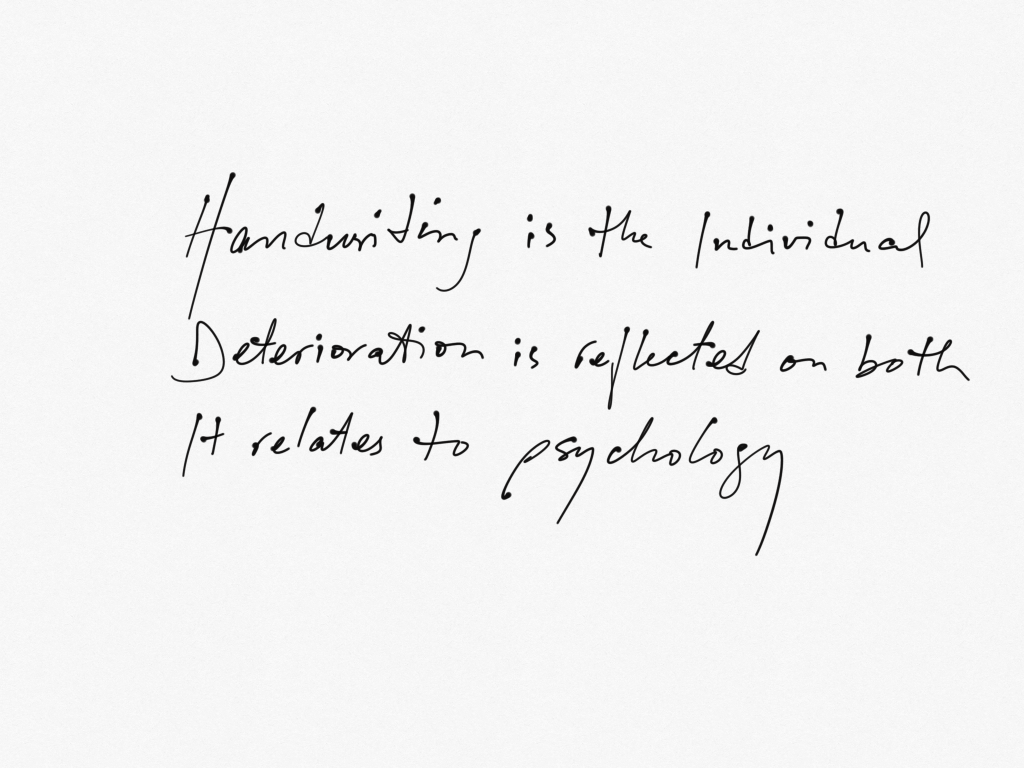 Handwriting is the Individual
Deterioration is reflected on both
It relates to psychology